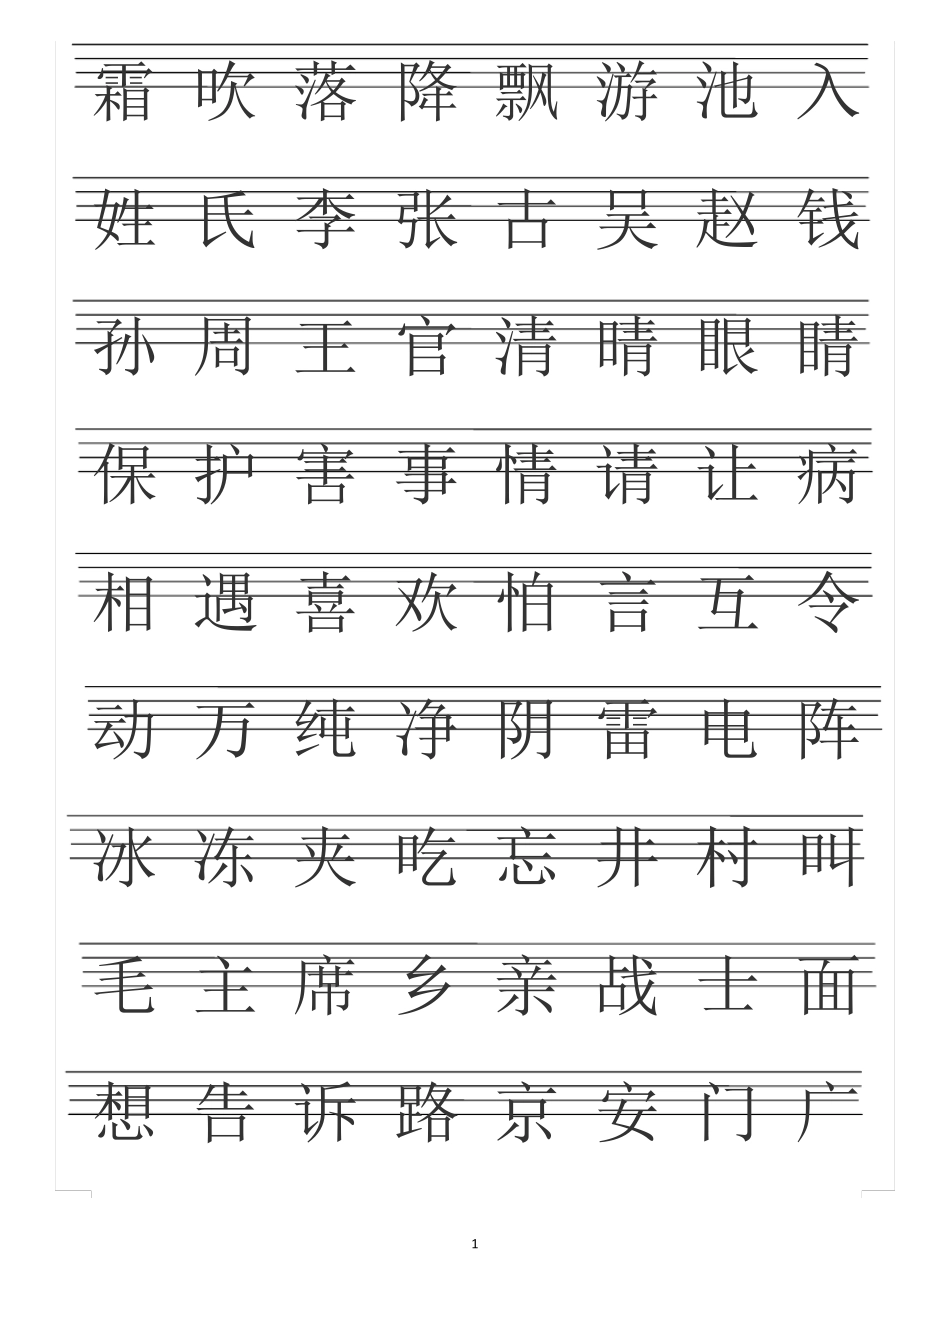 霜 吹 落 降 飘 游 池 入
姓 氏 李 张 古 吴 赵 钱
孙 周 王 官 清 晴 眼 睛
保 护 害 事 情 请 让 病
相 遇 喜 欢 怕 言 互 令
动 万 纯 净 阴 雷 电 阵
冰 冻 夹 吃 忘 井 村 叫
毛 主 席 乡 亲 战 士 面
想 告 诉 路 京 安 门 广
1